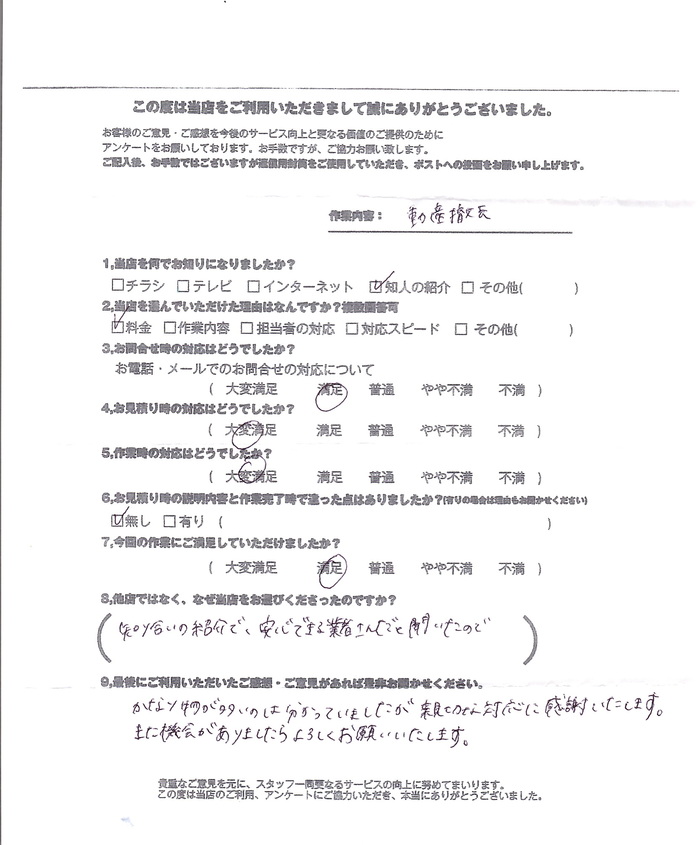 この度は当店をご利用いただきまして誠にありがとうございました。
お客様のご意見・ご感想を今後のサービス向上と更なる価値のご提供のために
アンケートをお願いしております。お手数ですが、ご協力お願い致します。
ご記入後、お手数ではございますが返信用封筒をご使用していただき、ポストへの投函をお願い申し上げます。
作業内容: 動産撤去
1,当店を何でお知りになりましたか?
☐チラシ ☐テレビ ☐インターネット ☑知人の紹介 ☐その他( )
2,当店を選んでいただけた理由はなんですか?複数回答可
☑料金 ☐作業内容 ☐担当者の対応 ☐対応スピード ☐その他( )
3,お問合せ時の対応はどうでしたか?
お電話・メールでのお問合せの対応について
( 大変満足 満足 普通 やや不満 不満 )
4,お見積り時の対応はどうでしたか?
( 大変満足 満足 普通 やや不満 不満 )
5,作業時の対応はどうでしたか?
( 大変満足 満足 普通 やや不満 不満 )
6,お見積り時の説明内容と作業完了時で違った点はありましたか?(有りの場合は理由もお聞かせください)
☑無し ☐有り ( )
7,今回の作業にご満足していただけましたか?
( 大変満足 満足 普通 やや不満 不満 )
8,他店ではなく、なぜ当店をお選びくださったのですか?
(知り合いの紹介で、安心できる業者さんだと聞いたので)
9,最後にご利用いただいたご感想・ご意見があれば是非お聞かせください。
かなり物が多いのは分かっていましたが 親切な対応に感謝いたします。
また機会がありましたらよろしくお願いいたします。
貴重なご意見を元に、スタッフ一同更なるサービスの向上に努めてまいります。
この度は当店のご利用、アンケートにご協力いただき、本当にありがとうございました。